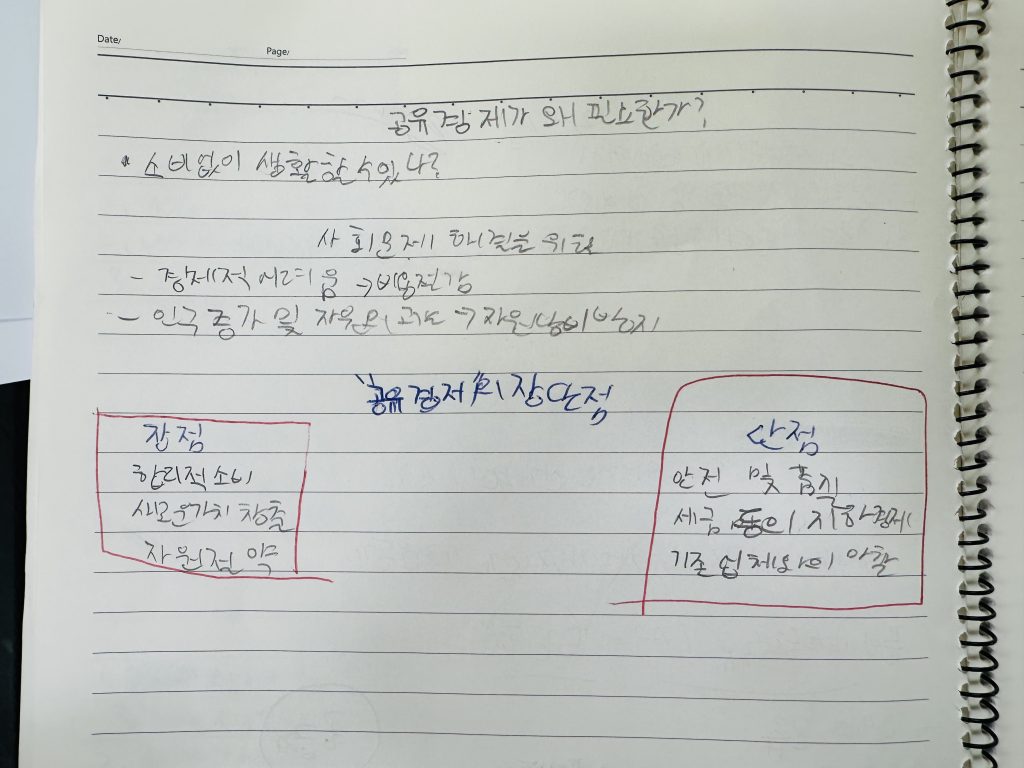 Date/
Page/
공유경제가 왜 필요한가?
• 소비없이 생활할 수 있나?
사회문제 해결을 위해
- 경제적 어려움 → 비용절감
- 인구증가 및 자원의 고갈 → 자원낭비방지
"공유경제"의 장단점
장점
단점
합리적소비
안전 및 품질
새로운가치 창출
세금 등의 지하경제
자원절약
기존업체와의 마찰